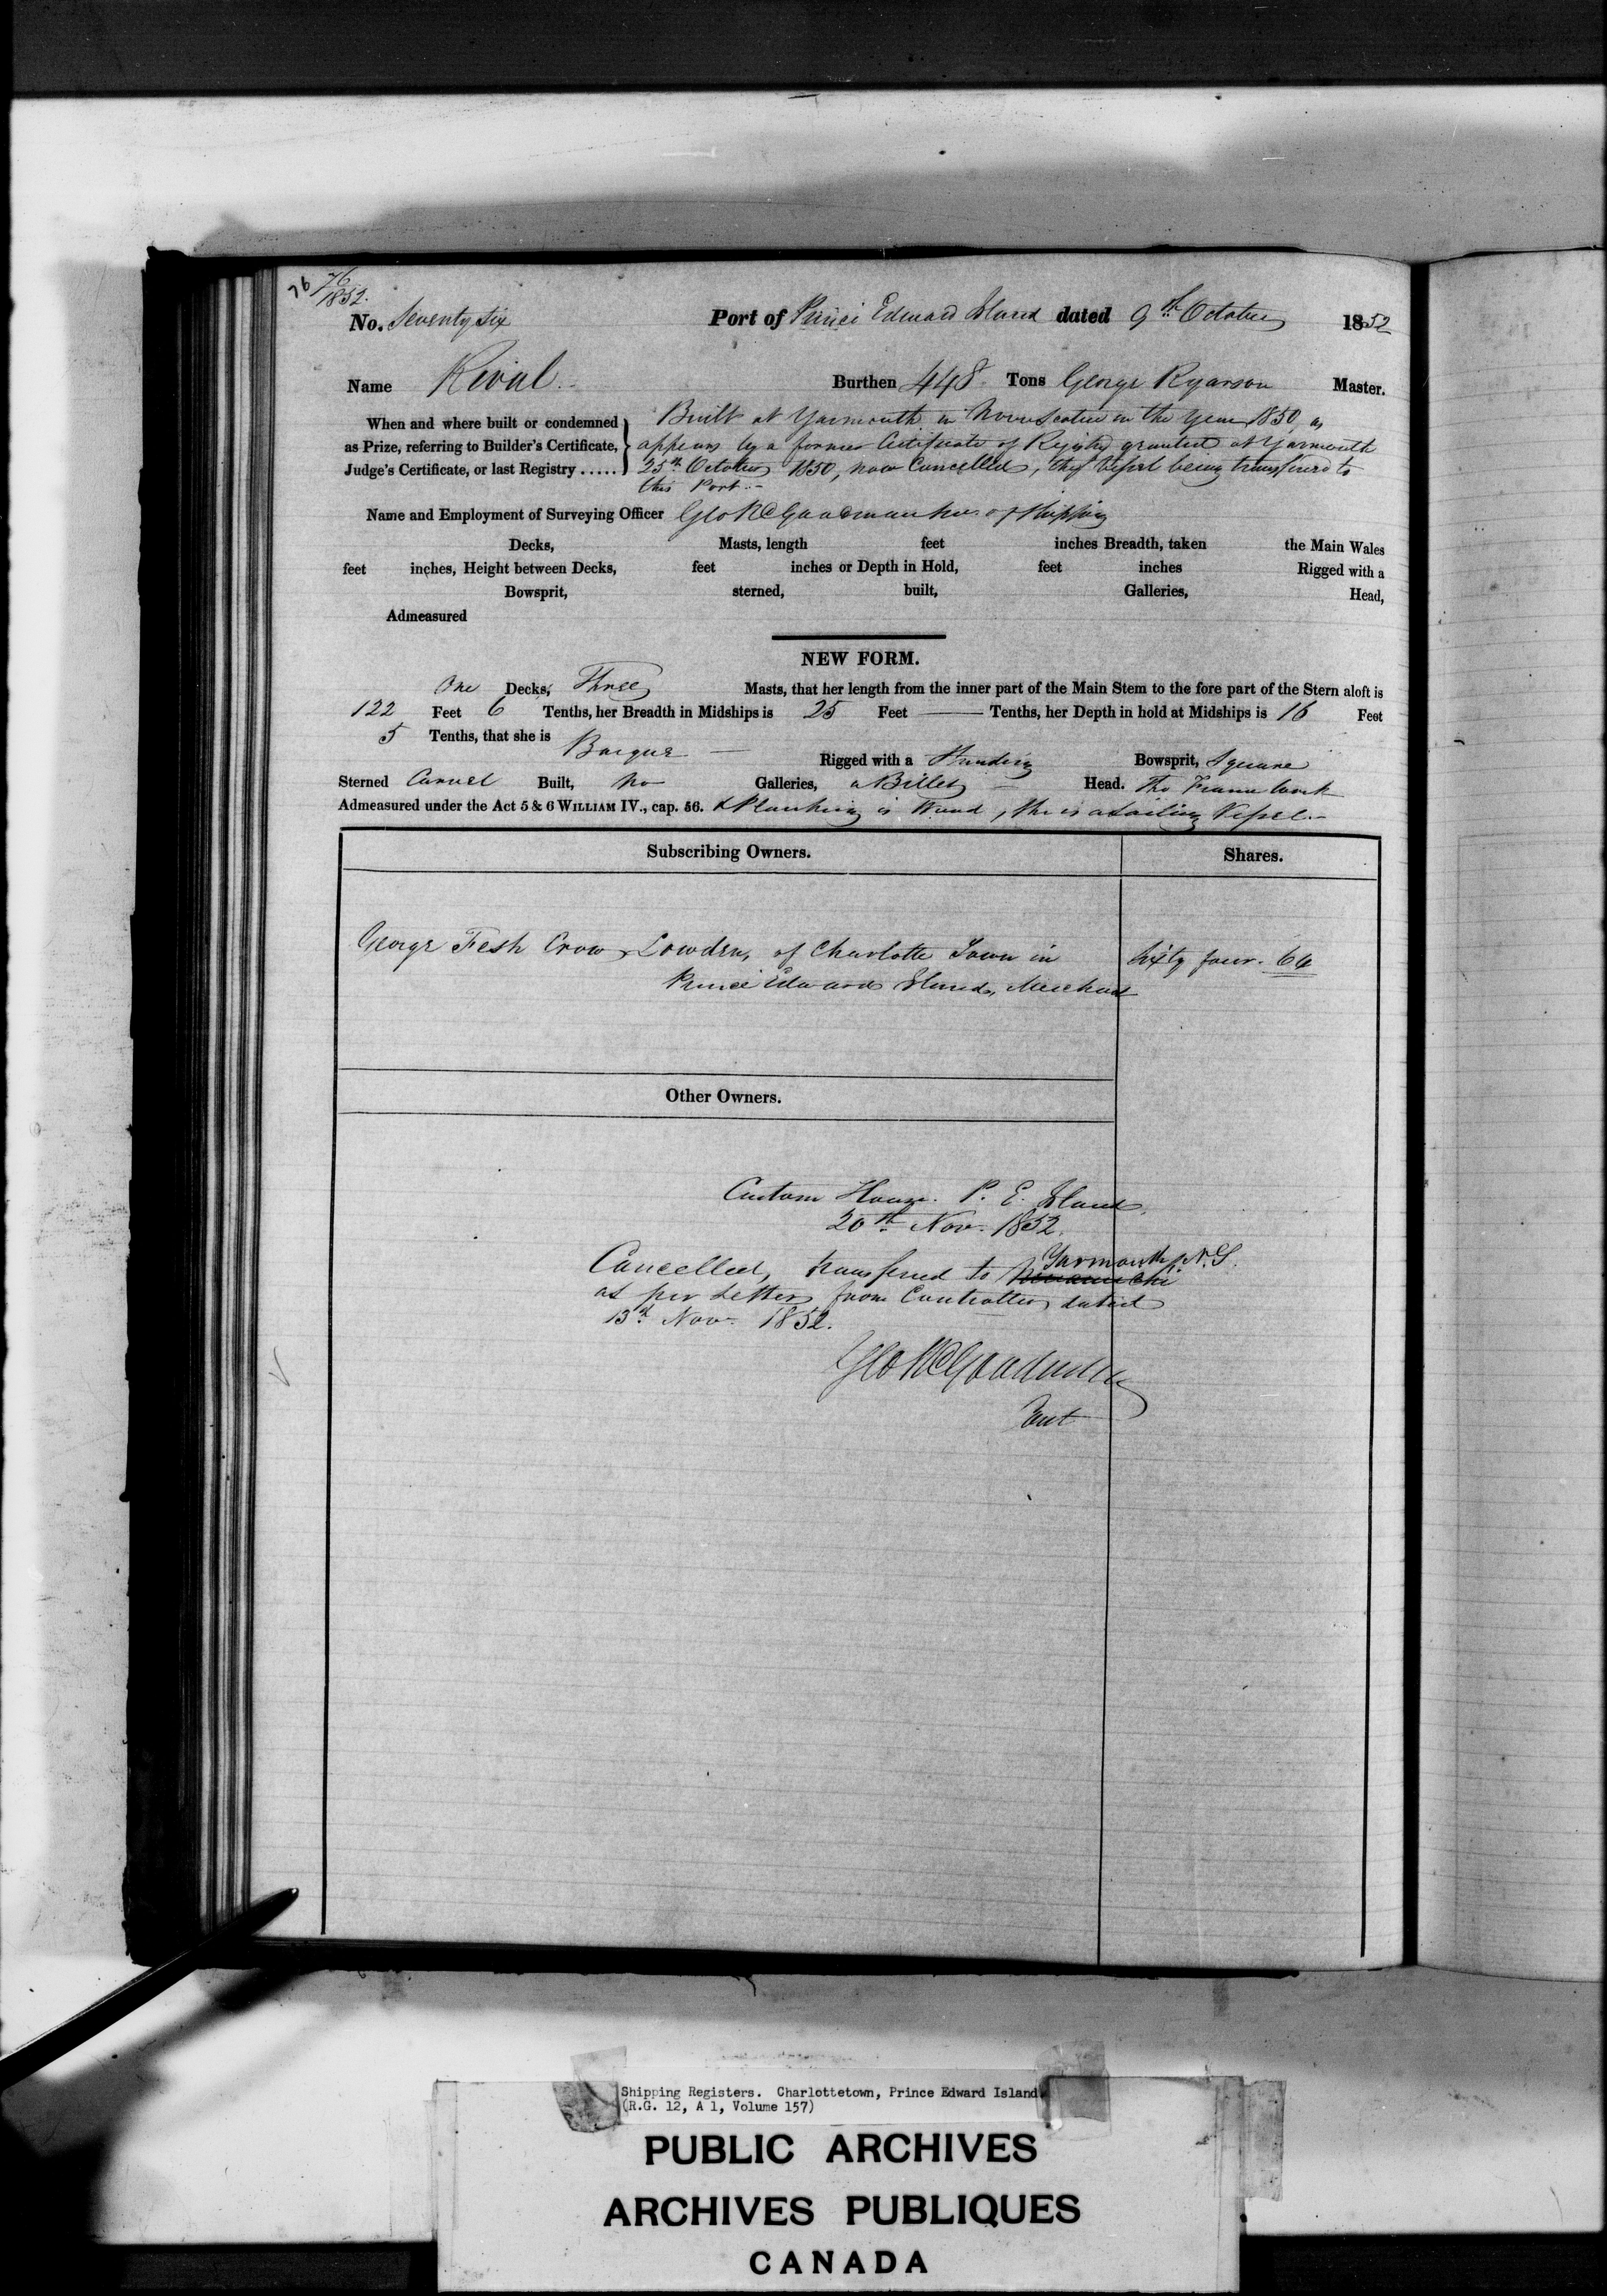 76
76
1852.
No. Seventy Six Port of Prince Edward Island dated 9th October 1852
Name Rival. Burthen 448 Tons George Ryarson Master.
When and where built or condemned as Prize, referring to Builder's Certificate, Judge's Certificate, or last Registry .....
Built at Yarmouth in Nova Scotia in the Year 1850, as
appears by a former Certificate of Registry granted at Yarmouth
25th October 1850, now Cancelled, the Vessel being transferred to
this Port.-
Name and Employment of Surveying Officer Geo R Goodman of Shipping
Decks, Masts, length feet inches Breadth, taken the Main Wales
feet inches, Height between Decks, feet inches or Depth in Hold, feet inches Rigged with a
Bowsprit, sterned, built, Galleries, Head,
Admeasured
NEW FORM.
One Decks, Three Masts, that her length from the inner part of the Main Stem to the fore part of the Stern aloft is
122 Feet 6 Tenths, her Breadth in Midships is 25 Feet — Tenths, her Depth in hold at Midships is 16 Feet
5 Tenths, that she is Barque — Rigged with a Standing Bowsprit, Square
Sterned Carvel Built, No Galleries, a Billet — Head. The Frame work
Admeasured under the Act 5 & 6 WILLIAM IV., cap. 56. & Planking is Wood, She is a Sailing Vessel.-
Subscribing Owners. Shares.
George Fesh Crow Lowden, of Charlotte Town in Sixty four. 64
Prince Edward Island, Merchant
Other Owners.
Custom House. P. E. Island,
20th Nov. 1852.
Cancelled, transferred to Miramichi Yarmouth, N.S.
as per Letter from Controller dated
13th Nov. 1852.
Geo R Goodman
Shipping Registers. Charlottetown, Prince Edward Island
(R.G. 12, A 1, Volume 157)
PUBLIC ARCHIVES
ARCHIVES PUBLIQUES
CANADA